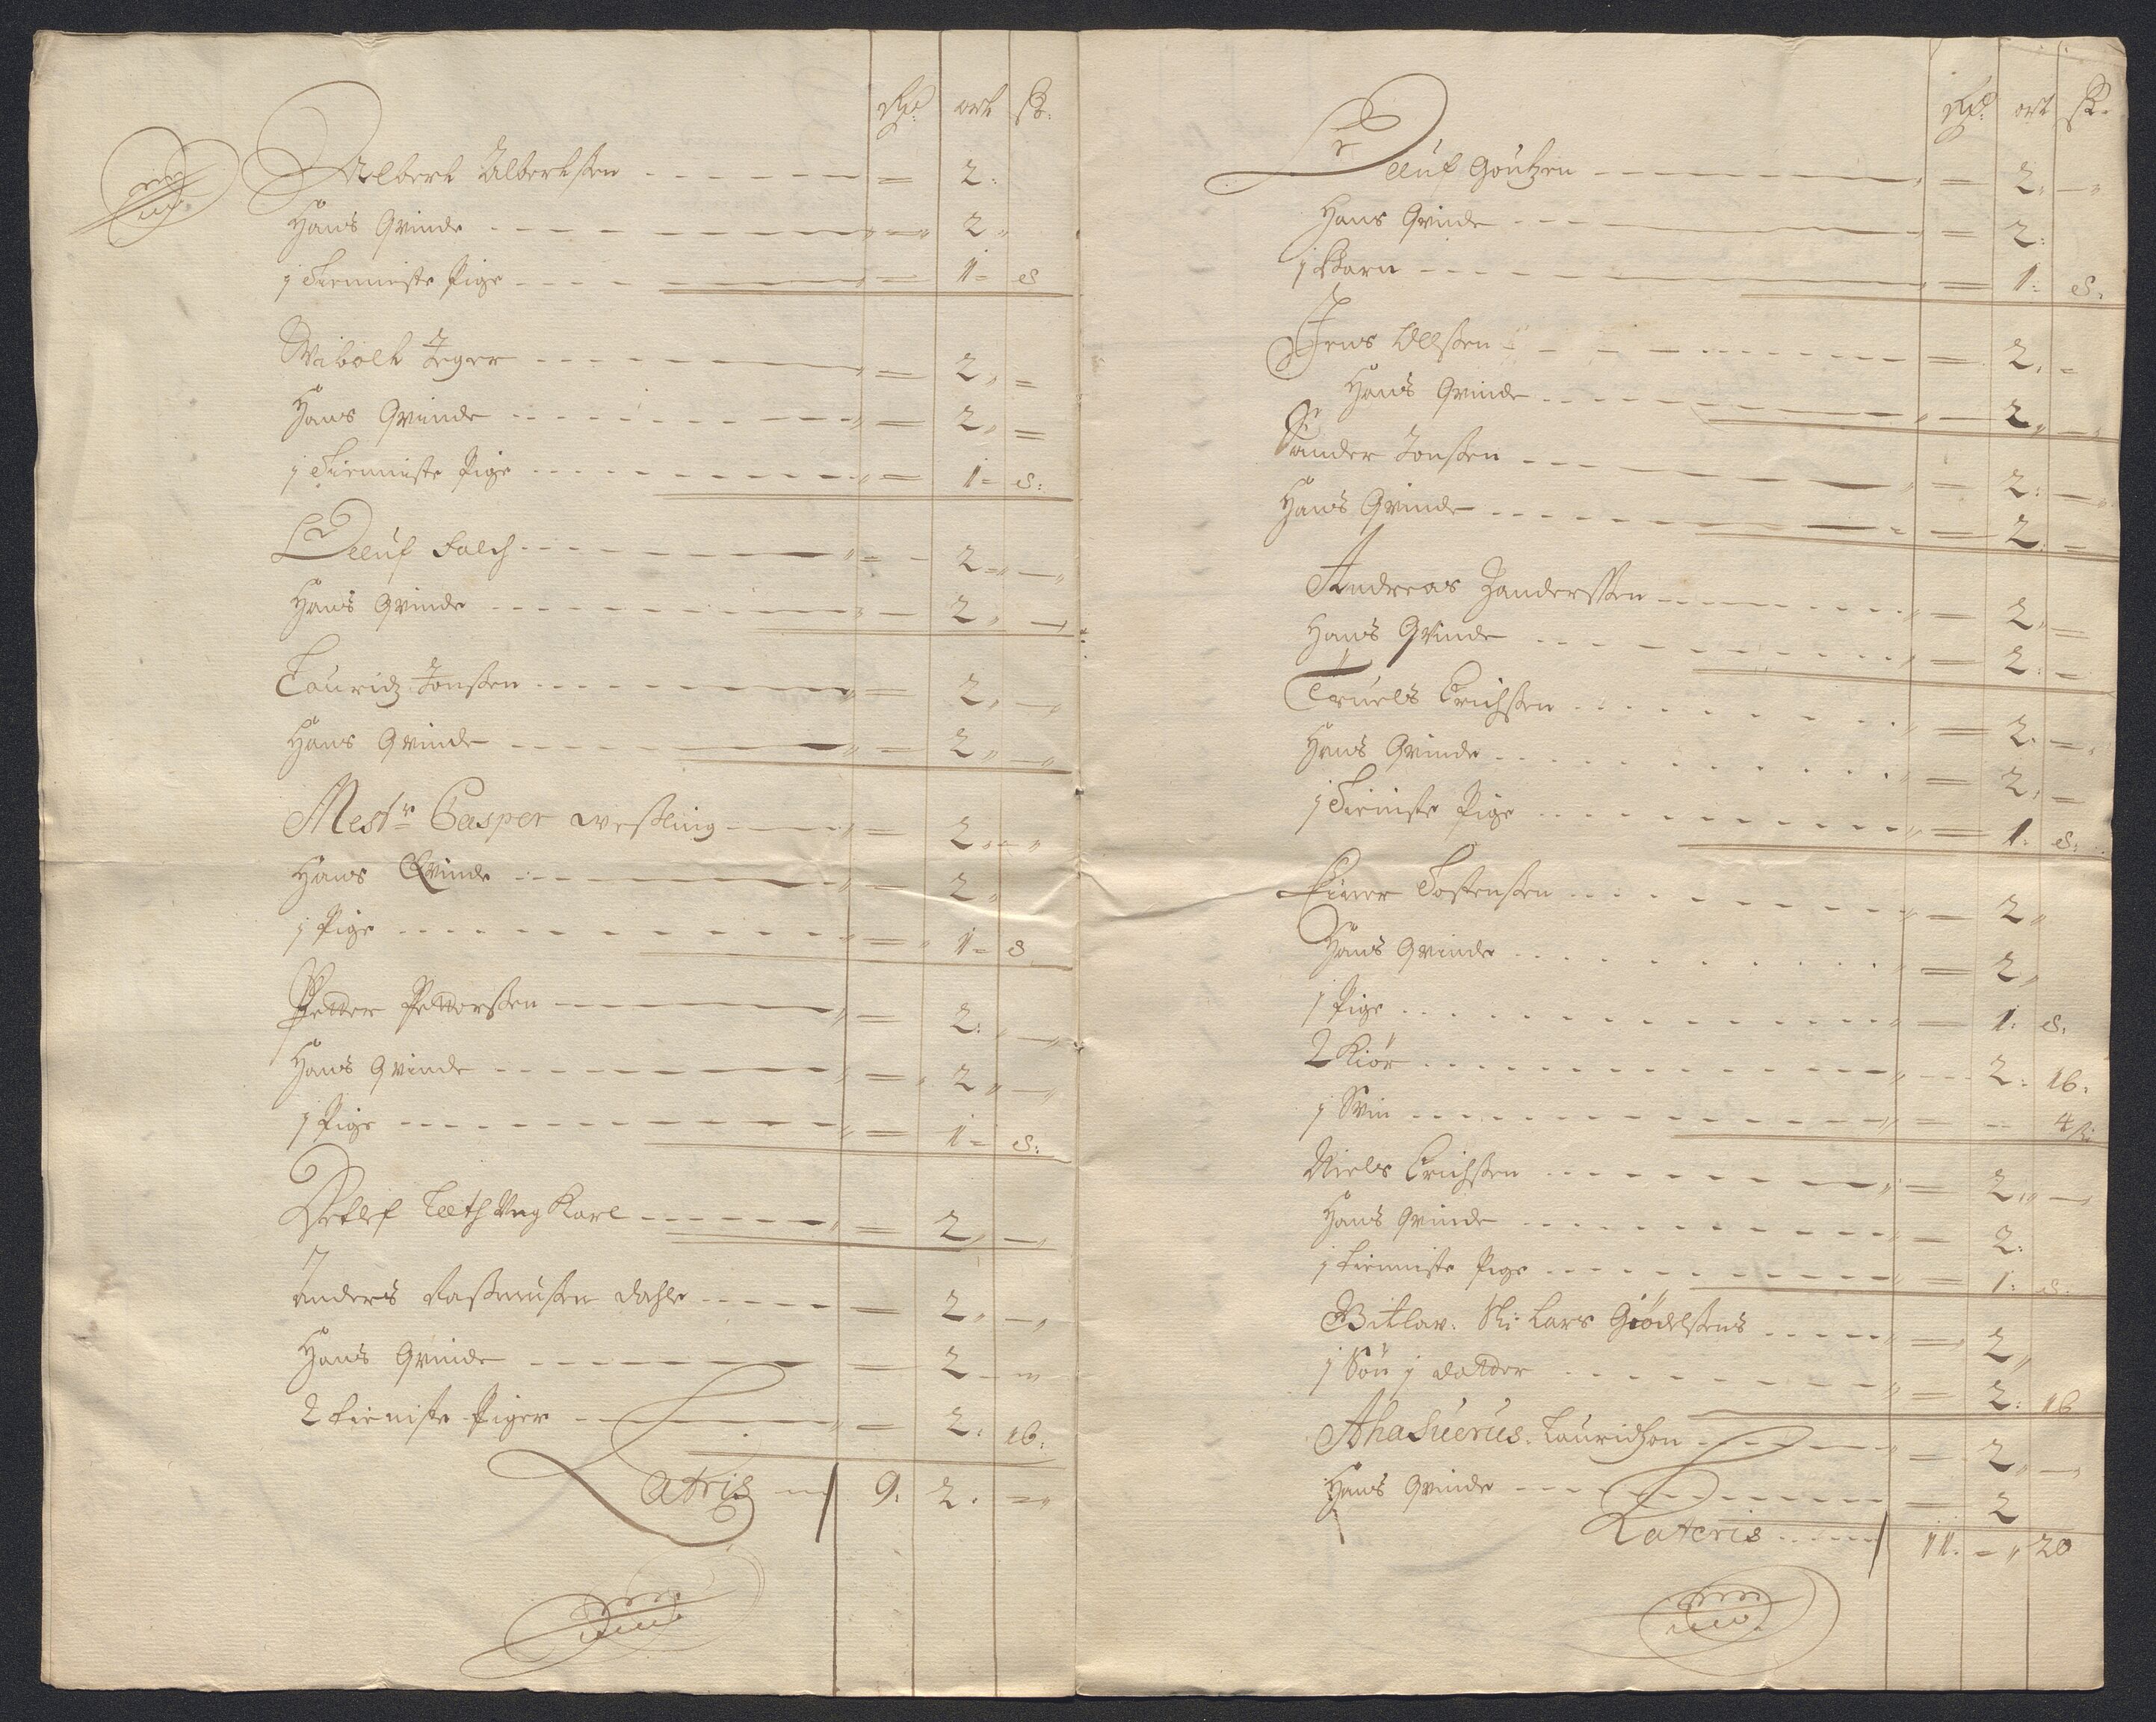 Rdr. ort ß.
Albert Albertsen = 2.
Hans Qvinde = 2
j Tienniste Pige = 1 = 8
Wibolt Jeger = 2
Hans Qvinde = 2
j Tienniste Pige = 1 = 8:
Oeluf Falch = 2
Hans Qvinde = 2
Lauridz Jonßen = 2
Hans Qvinde = 2
Mestr Casper weßling = 2
Hans Qvinde = 2
j Pige = 1 = 8
Petter Petterßen = 2:
Hans Qvinde = 2
j Pige = 1 = 8:
Detlef Ung Karl = 2
Anders Raßmußen dahle = 2
Hans Qvinde = 2
2 tieniste Piger = 2: 16:
Latris 9: 2.
Rdr. ort ß.
Oeluf Goutzen = 2.
Hans Qvinde = 2:
j Barn = 1: 8.
Jens Olßen = 2.
Hans Qvinde = 2
Sander Jonßen = 2:
Hans Qvinde = 2.
Andreas Zanderßen = 2
Hans Qvinde = 2:
Truels Erichßen = 2.
Hans Qvinde = 2.
j Tieniste Pige = 1: 8:
Einer Tostenßen = 2
Hans Qvinde = 2
j Pige = 1: 8.
2 Kiör 2: 16.
j Svin = 4 ß:
Niels Erichßen = 2
Hans Qvinde = 2:
j tienniste Pige = 1: 8:
Sl: Lars Giödelßens = 2
j Sön j datter = 2: 16
Ahasuerus. Lauridzon = 2
Hans Qvinde = 2
Lateris 11. = 20